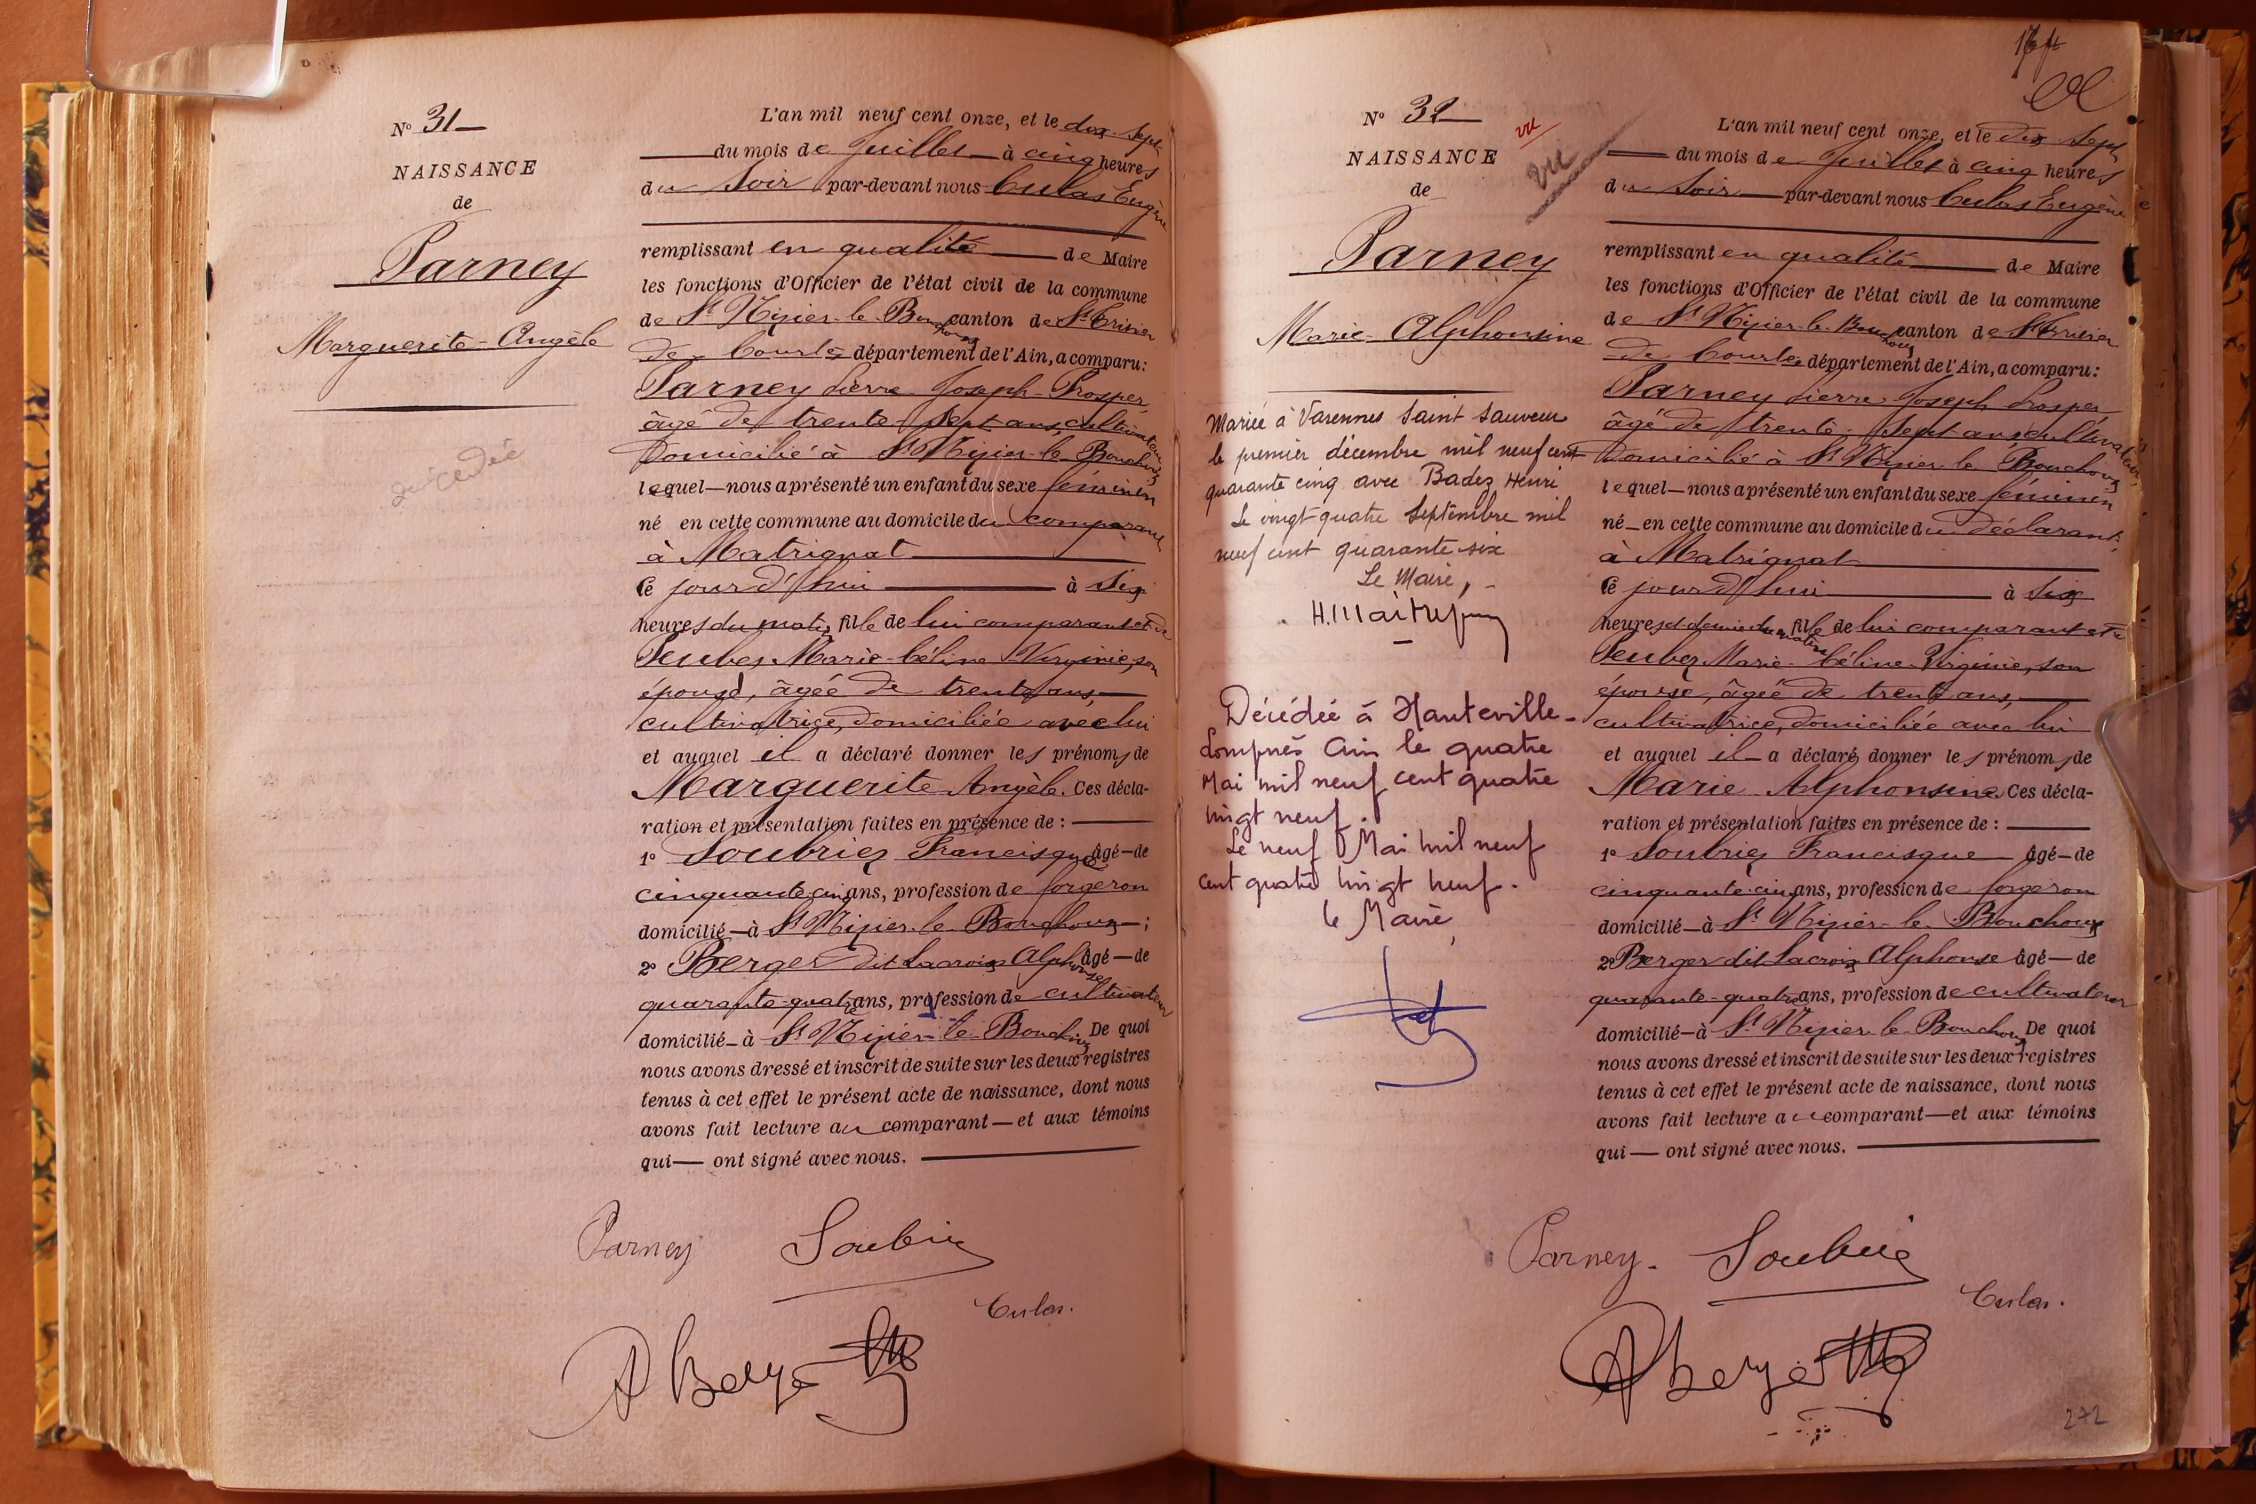 N° 31
NAISSANCE
de
Parney
Marguerite-Angèle
décédée
L'an mil neuf cent onze, et le dix-sept
du mois de Juillet à cinq heures
du soir par-devant nous Culas Eugène
remplissant en qualité de Maire
les fonctions d'Officier de l'état civil de la commune
de St Nizier-le-Bouchoux canton de St Trivier
de Courtes département de l'Ain, a comparu :
Parney Pierre-Joseph-Prosper,
âgé de trente-sept ans, cultivateur,
domicilié à St Nizier-le-Bouchoux
lequel nous a présenté un enfant du sexe féminin
né en cette commune au domicile du comparant
à Matrignat
Ce jourd'hui à six
heures du matin, fille de lui comparant et de
Marie-Céline Virginie, son
épouse, âgée de trente ans,
cultivatrice, domiciliée avec lui
et auquel il a déclaré donner les prénoms de
Marguerite Angèle. Ces décla-
ration et présentation faites en présence de :
1° Soubriez Francisque âgé de
cinquante-cinq ans, profession de forgeron
domicilié à St Nizier-le-Bouchoux ;
2° Berger dit Lacroix Alphonse âgé de
quarante-quatre ans, profession de cultivateur
domicilié à St Nizier-le-Bouchoux De quoi
nous avons dressé et inscrit de suite sur les deux registres
tenus à cet effet le présent acte de naissance, dont nous
avons fait lecture au comparant et aux témoins
qui ont signé avec nous.
Parney Soubriez
Culas.
A Berger
N° 32
vu
vu
NAISSANCE
de
Parney
Marie-Alphonsine
Mariée à Varennes Saint Sauveur
le premier décembre mil neuf cent
quarante cinq avec Badez Henri
Le vingt-quatre Septembre mil
neuf cent quarante-six
Le Maire,
Décédée à Hauteville-
Lompnès Ain le quatre
Mai mil neuf cent quatre
vingt neuf.
Le neuf Mai mil neuf
cent quatre vingt neuf.
le Maire
L'an mil neuf cent onze, et le dix-sept
du mois de Juillet à cinq heures
du soir par-devant nous Culas Eugène
remplissant en qualité de Maire
les fonctions d'Officier de l'état civil de la commune
de St Nizier-le-Bouchoux canton de St Trivier
de Courtes département de l'Ain, a comparu :
Parney Pierre-Joseph Prosper
âgé de trente-sept ans, cultivateur,
domicilié à St Nizier-le-Bouchoux
lequel nous a présenté un enfant du sexe féminin
né en cette commune au domicile du déclarant,
à Matrignat
Ce jourd'hui à six
heures et demie du matin fille de lui comparant et de
Marie-Céline-Virginie, son
épouse, âgée de trente ans,
cultivatrice, domiciliée avec lui
et auquel il a déclaré donner les prénoms de
Marie Alphonsine. Ces décla-
ration et présentation faites en présence de :
1° Soubriez Francisque âgé de
cinquante-cinq ans, profession de forgeron
domicilié à St Nizier-le-Bouchoux
2° Berger dit Lacroix Alphonse âgé de
quarante-quatre ans, profession de cultivateur
domicilié à St Nizier-le-Bouchoux De quoi
nous avons dressé et inscrit de suite sur les deux registres
tenus à cet effet le présent acte de naissance, dont nous
avons fait lecture au comparant et aux témoins
qui ont signé avec nous.
Parney. Soubriez
Culas.
A Berger
272